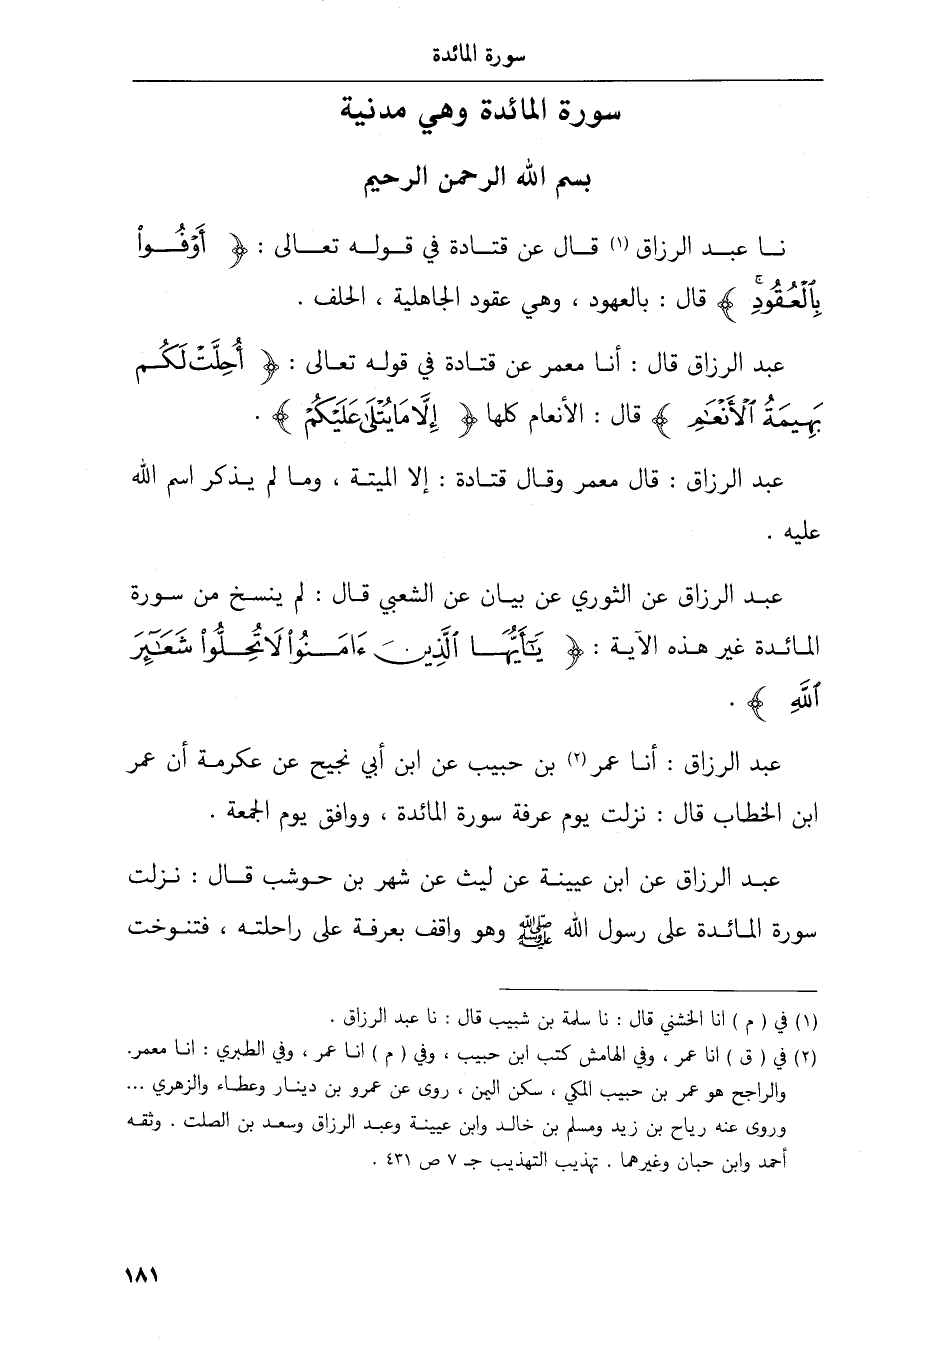 سورة المائدة
سورة المائدة وهي مدنية
بسم الله الرحمن الرحيم
نا عبد الرزاق (١) قال عن قتادة في قوله تعالى : ﴿ أَوْفُوا۟
بِٱلْعُقُودِ ۚ ﴾ قال : بالعهود ، وهي عقود الجاهلية ، الحلف .
عبد الرزاق قال : أنا معمر عن قتادة في قوله تعالى : ﴿ أُحِلَّتْ لَكُم
بَهِيمَةُ ٱلْأَنْعَٰمِ ﴾ قال : الأنعام كلها ﴿ إِلَّا مَا يُتْلَىٰ عَلَيْكُمْ ﴾ .
عبد الرزاق : قال معمر وقال قتادة : إلا الميتة ، وما لم يذكر اسم الله
عليه .
عبد الرزاق عن الثوري عن بيان عن الشعبي قال : لم ينسخ من سورة
المائدة غير هذه الآية : ﴿ يَٰٓأَيُّهَا ٱلَّذِينَ ءَامَنُوا۟ لَا تُحِلُّوا۟ شَعَٰٓئِرَ
ٱللَّهِ ﴾ .
عبد الرزاق : أنا عمر (٢) بن حبيب عن ابن أبي نجيح عن عكرمة أن عمر
ابن الخطاب قال : نزلت يوم عرفة سورة المائدة ، ووافق يوم الجمعة .
عبد الرزاق عن ابن عيينة عن ليث عن شهر بن حوشب قال : نزلت
سورة المائدة على رسول الله ﷺ وهو واقف بعرفة على راحلته ، فتنوخت
(١) في ( م ) انا الخشني قال : نا سلمة بن شبيب قال : نا عبد الرزاق .
(٢) في ( ق ) انا عمر ، وفي الهامش كتب ابن حبيب ، وفي ( م ) انا عمر ، وفي الطبري : انا معمر.
والراجح هو عمر بن حبيب المكي ، سكن اليمن ، روى عن عمرو بن دينار وعطاء والزهري ...
وروى عنه رباح بن زيد ومسلم بن خالد وابن عيينة وعبد الرزاق وسعد بن الصلت . وثقه
أحمد وابن حبان وغيرهما . تهذيب التهذيب جـ ٧ ص ٤٣١ .
١٨١